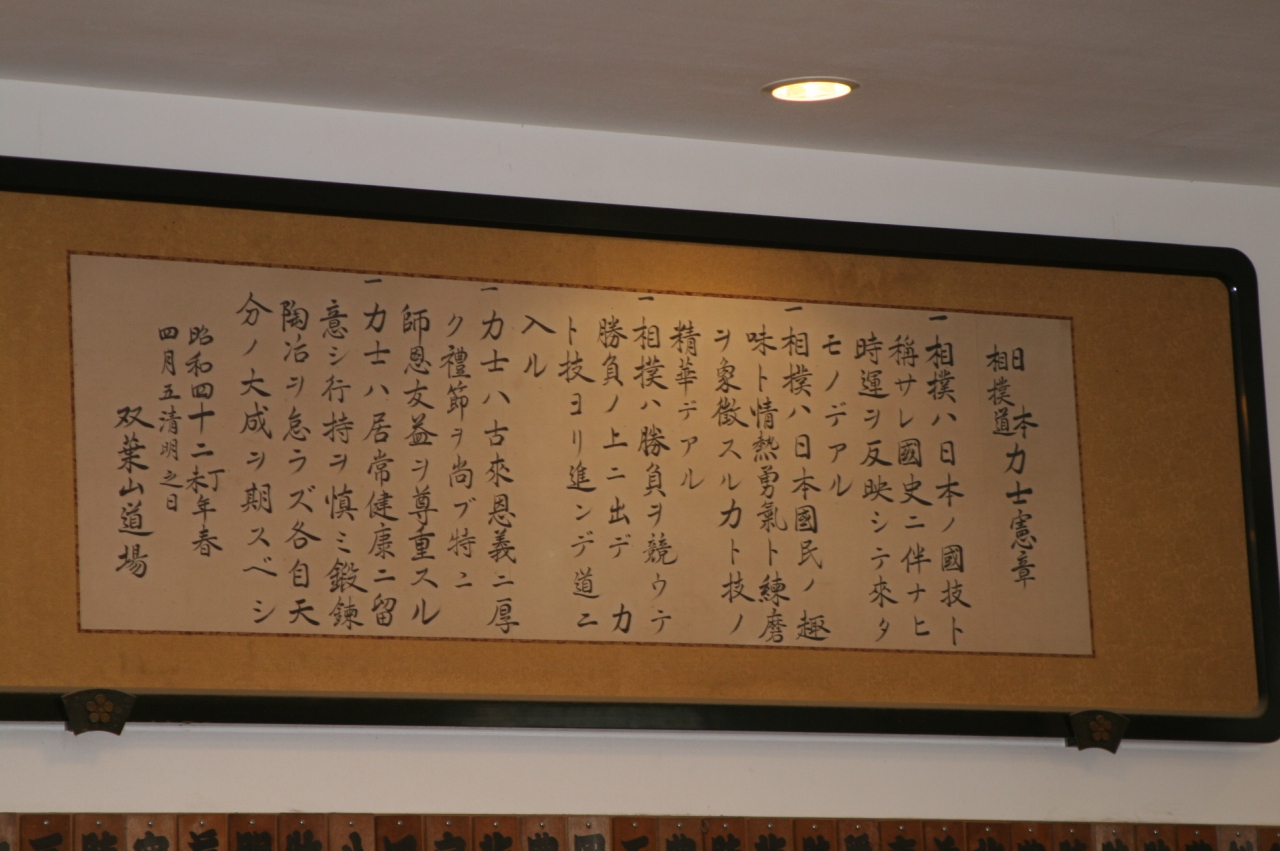 日本力士憲章
相撲道
一相撲ハ日本ノ國技ト
稱サレ國史ニ伴ナヒ
時運ヲ反映シテ來タ
モノデアル
一相撲ハ日本國民ノ趣
味ト情熱勇氣ト練磨
ヲ象徴スル力ト技ノ
精華デアル
一相撲ハ勝負ヲ競ウテ
勝負ノ上ニ出デ 力
ト技ヨリ進ンデ道ニ
入ル
一力士ハ古來恩義ニ厚
ク禮節ヲ尚ブ特ニ
師恩友益ヲ尊重スル
一力士ハ居常健康ニ留
意シ行持ヲ慎ミ鍛錬
陶冶ヲ怠ラズ各自天
分ノ大成ヲ期スベシ
昭和四十二丁未年春
四月五清明之日
双葉山道場